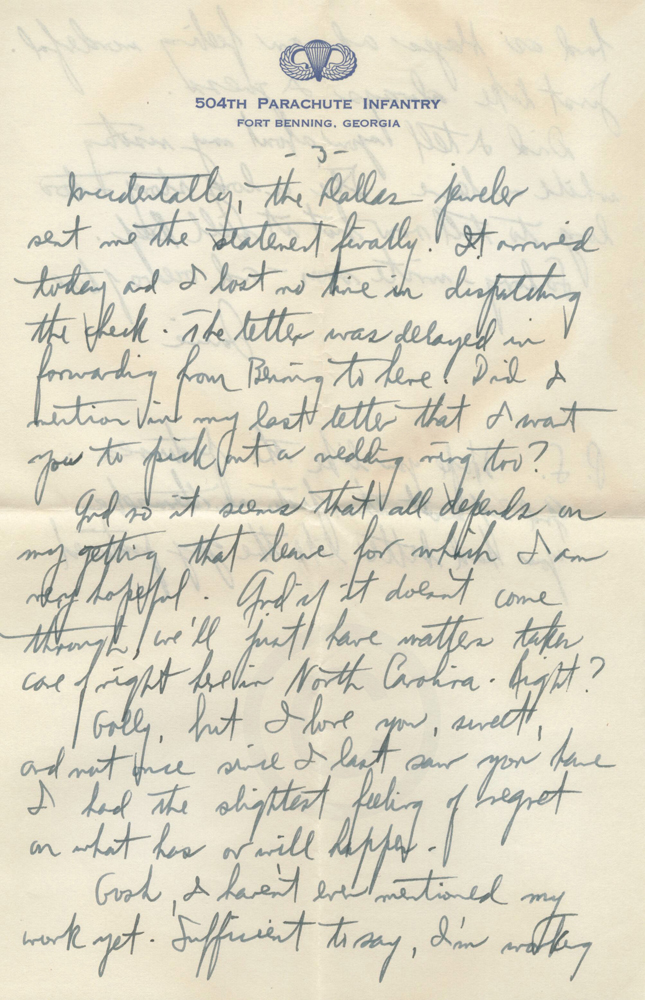 504TH PARACHUTE INFANTRY
FORT BENNING, GEORGIA
- 3 -
Incidentally, the Dallas jeweler
sent me the statement finally. It arrived
today and I lost no time in dispatching
the check. The letter was delayed in
forwarding from Benning to here. Did I
mention in my last letter that I want
you to pick out a wedding ring too?
And so it seems that all depends on
my getting that leave for which I am
very hopeful. And if it doesn't come
through, we'll just have matters taken
care of right here in North Carolina. Right?
Golly, but I love you, sweet,
and not once since I last saw you have
I had the slightest feeling of regret
on what has or will happen.
Gosh, I haven't even mentioned my
work yet. Sufficient to say, I'm working